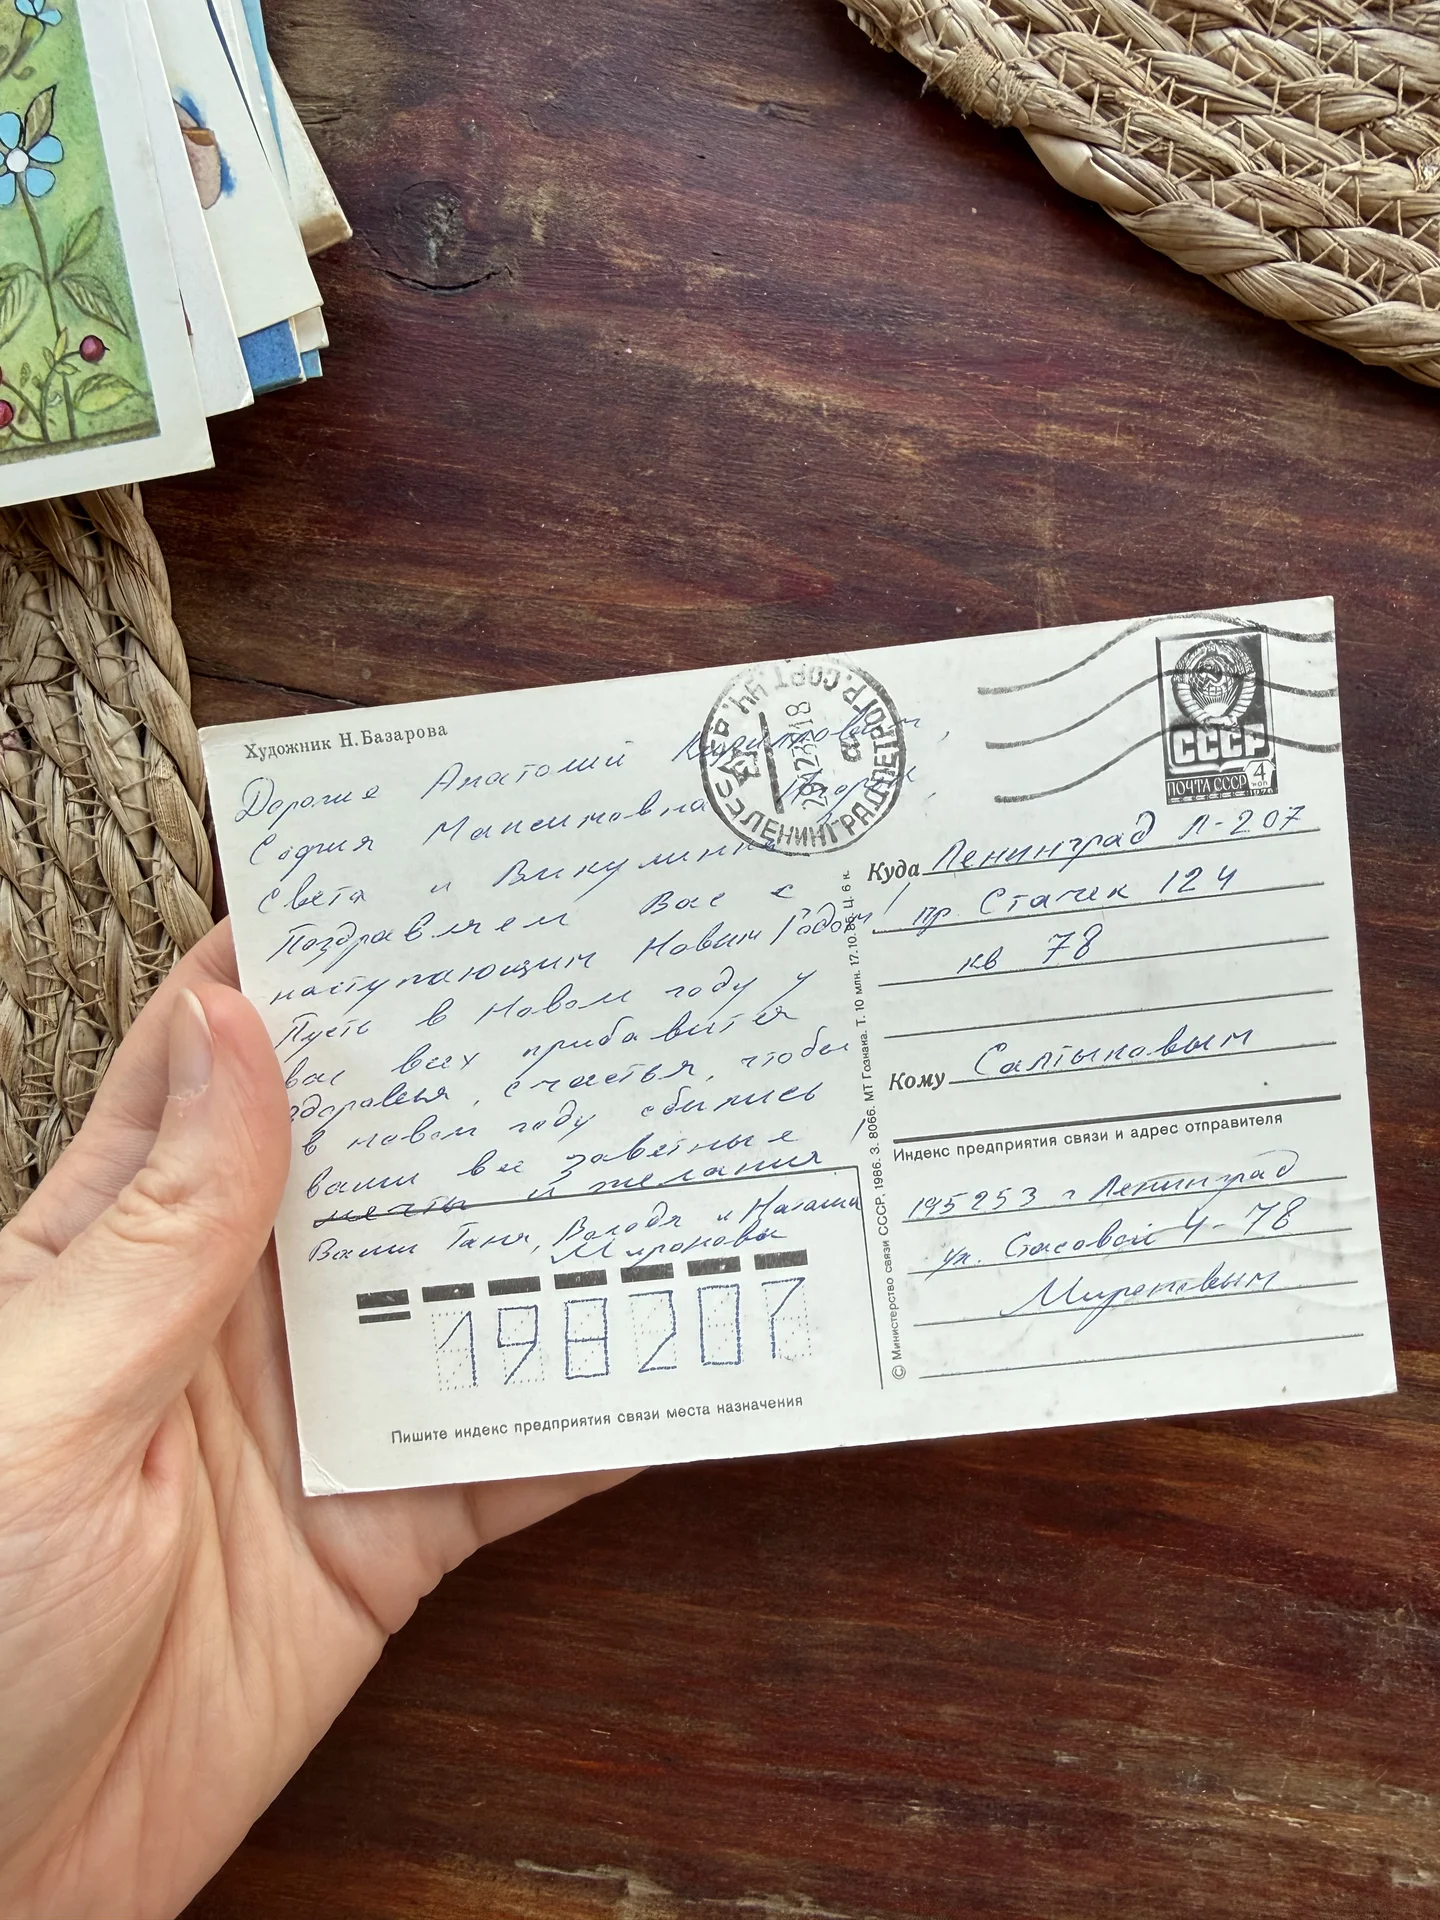 Художник Н.Базарова
Дорогие Анатолий
София Максимовна Игорь
Света и Викулинка
Поздравляем Вас с
наступающим Новым Годом!
Пусть в Новом году у
вас всех прибавится
здоровья, счастья, чтобы
в новом году сбылись
ваши все заветные
мечты и желания!
Ваши Таня, Володя и Наташа
Мироновы
198207
Пишите индекс предприятия связи места назначения
ЛЕНИНГРАД
СССР
ПОЧТА СССР 4 коп
1976
Куда Ленинград Л-207
пр. Стачек 124
кв 78
Кому Салтыковым
Индекс предприятия связи и адрес отправителя
195253 г Ленинград
ул. Стасовой 4-78
Мироновым
© Министерство связи СССР, 1986. З. 8066. МТ Гознака. Т. 10 млн. 17.10.86. Ц. 6 к.